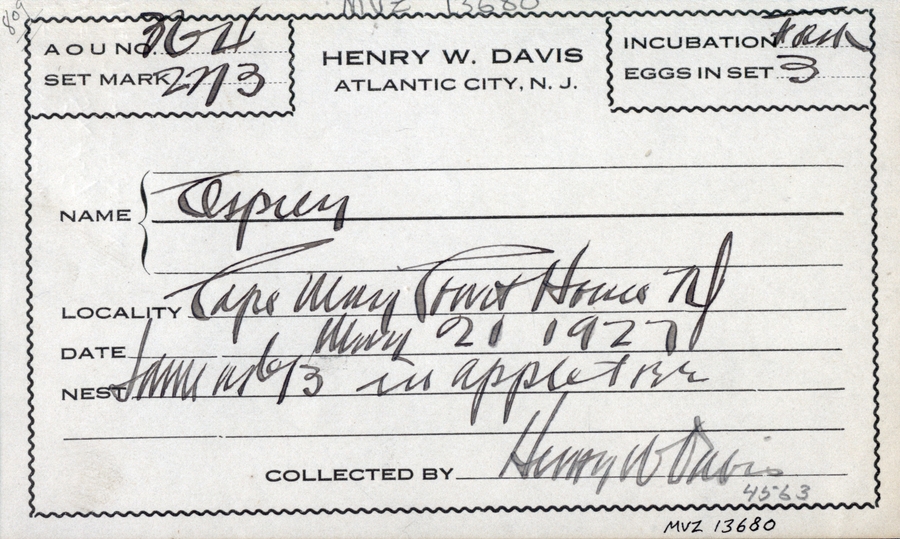 809
MVZ 13680
A O U NO 364
SET MARK 27/3
HENRY W. DAVIS
ATLANTIC CITY, N. J.
INCUBATION Fresh
EGGS IN SET 3
NAME Osprey
LOCALITY Cape May Court House NJ
DATE May 21 1927
NEST Same as 6/3 in apple tree
COLLECTED BY Henry W Davis
4563
MVZ 13680